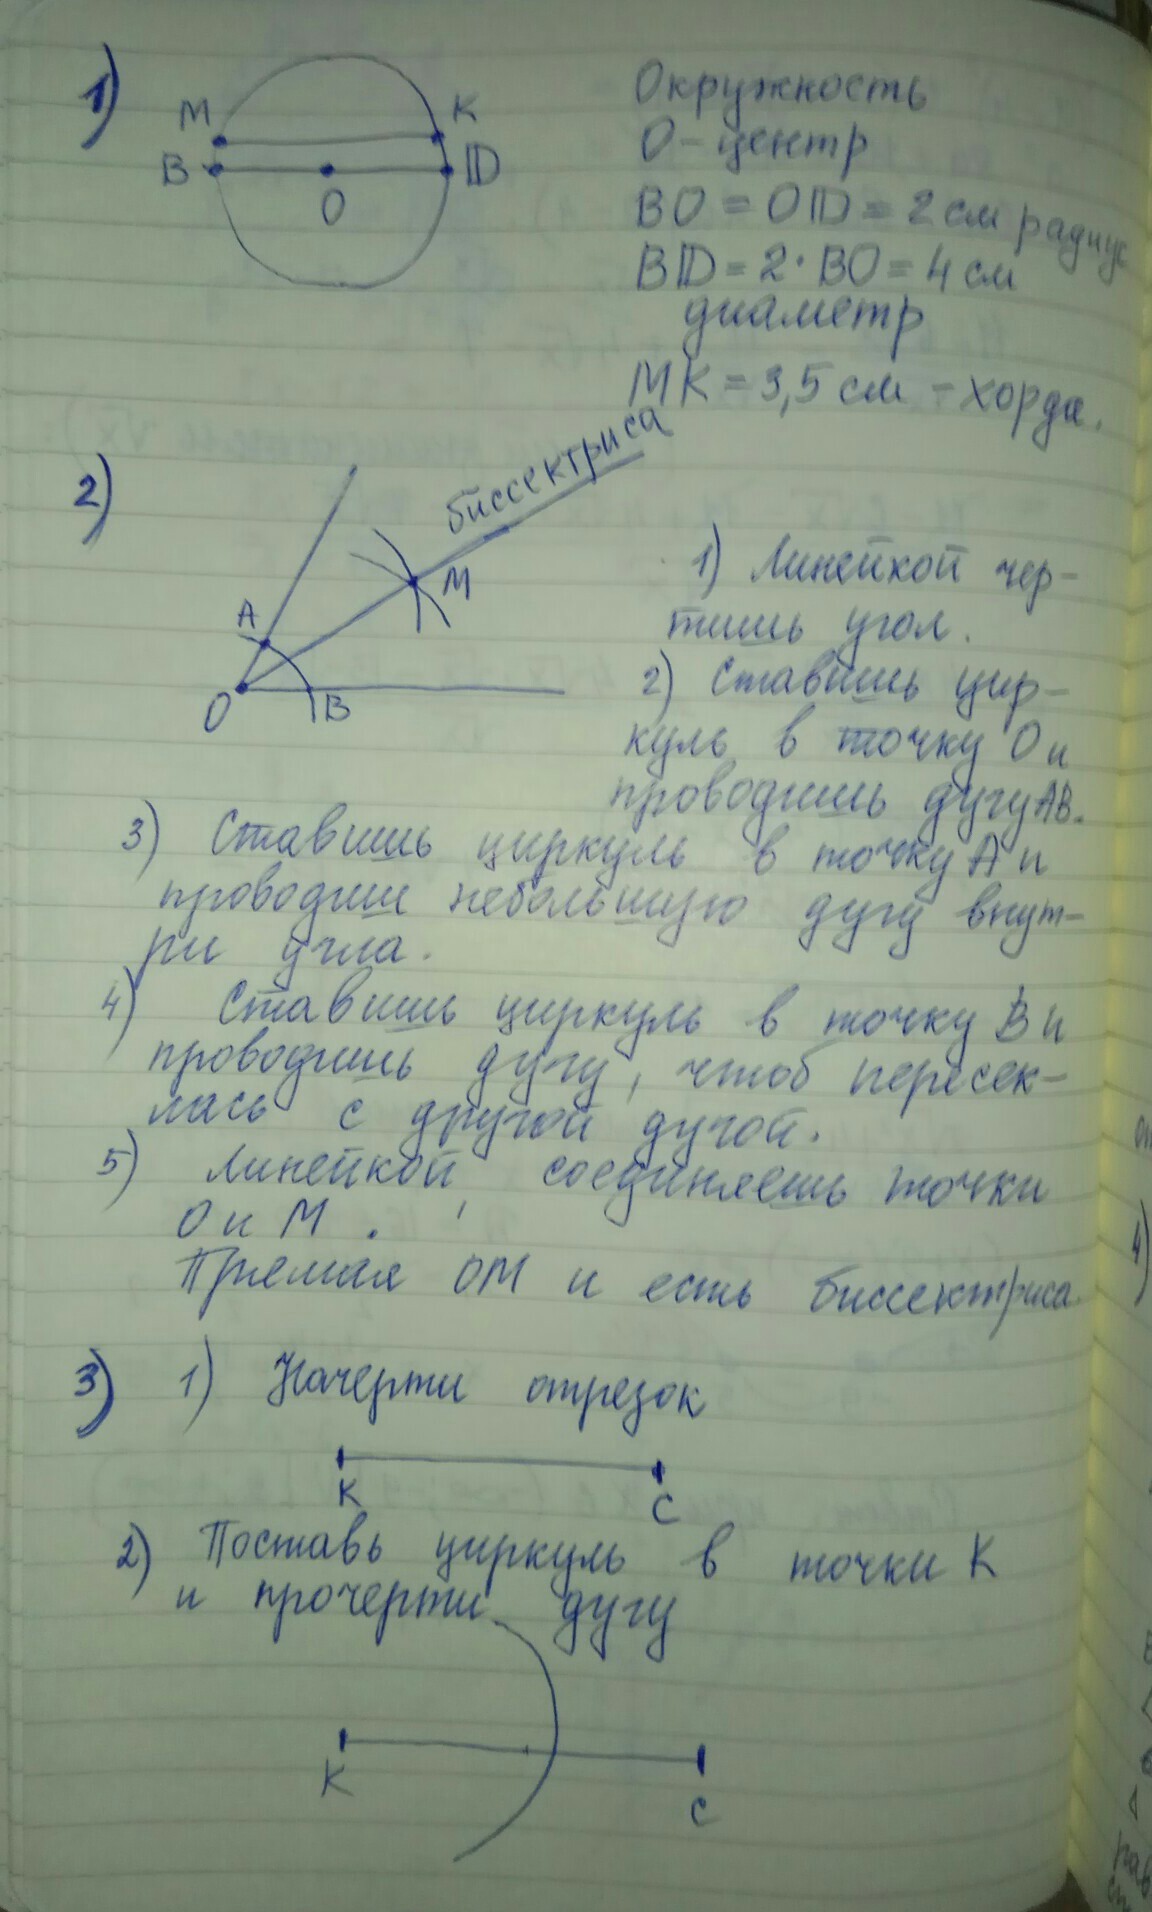 1)
М
К
В
D
О
Окружность
О - центр
ВО = ОD = 2 см радиус
ВD = 2 · ВО = 4 см
диаметр
МК = 3,5 см - хорда.
2)
биссектриса
А
М
О
В
1) Линейкой чер-
тишь угол.
2) Ставишь цир-
куль в точку О и
проводишь дугу АВ.
3) Ставишь циркуль в точку А и
проводиш небольшую дугу внут-
ри угла.
4) Ставишь циркуль в точку В и
проводишь дугу, чтоб пересек-
лась с другой дугой.
5) Линейкой соединяешь точки
О и М.
Прямая ОМ и есть биссектриса
3) 1) Начерти отрезок
К
С
2) Поставь циркуль в точки К
и прочерти дугу
К
С
4)